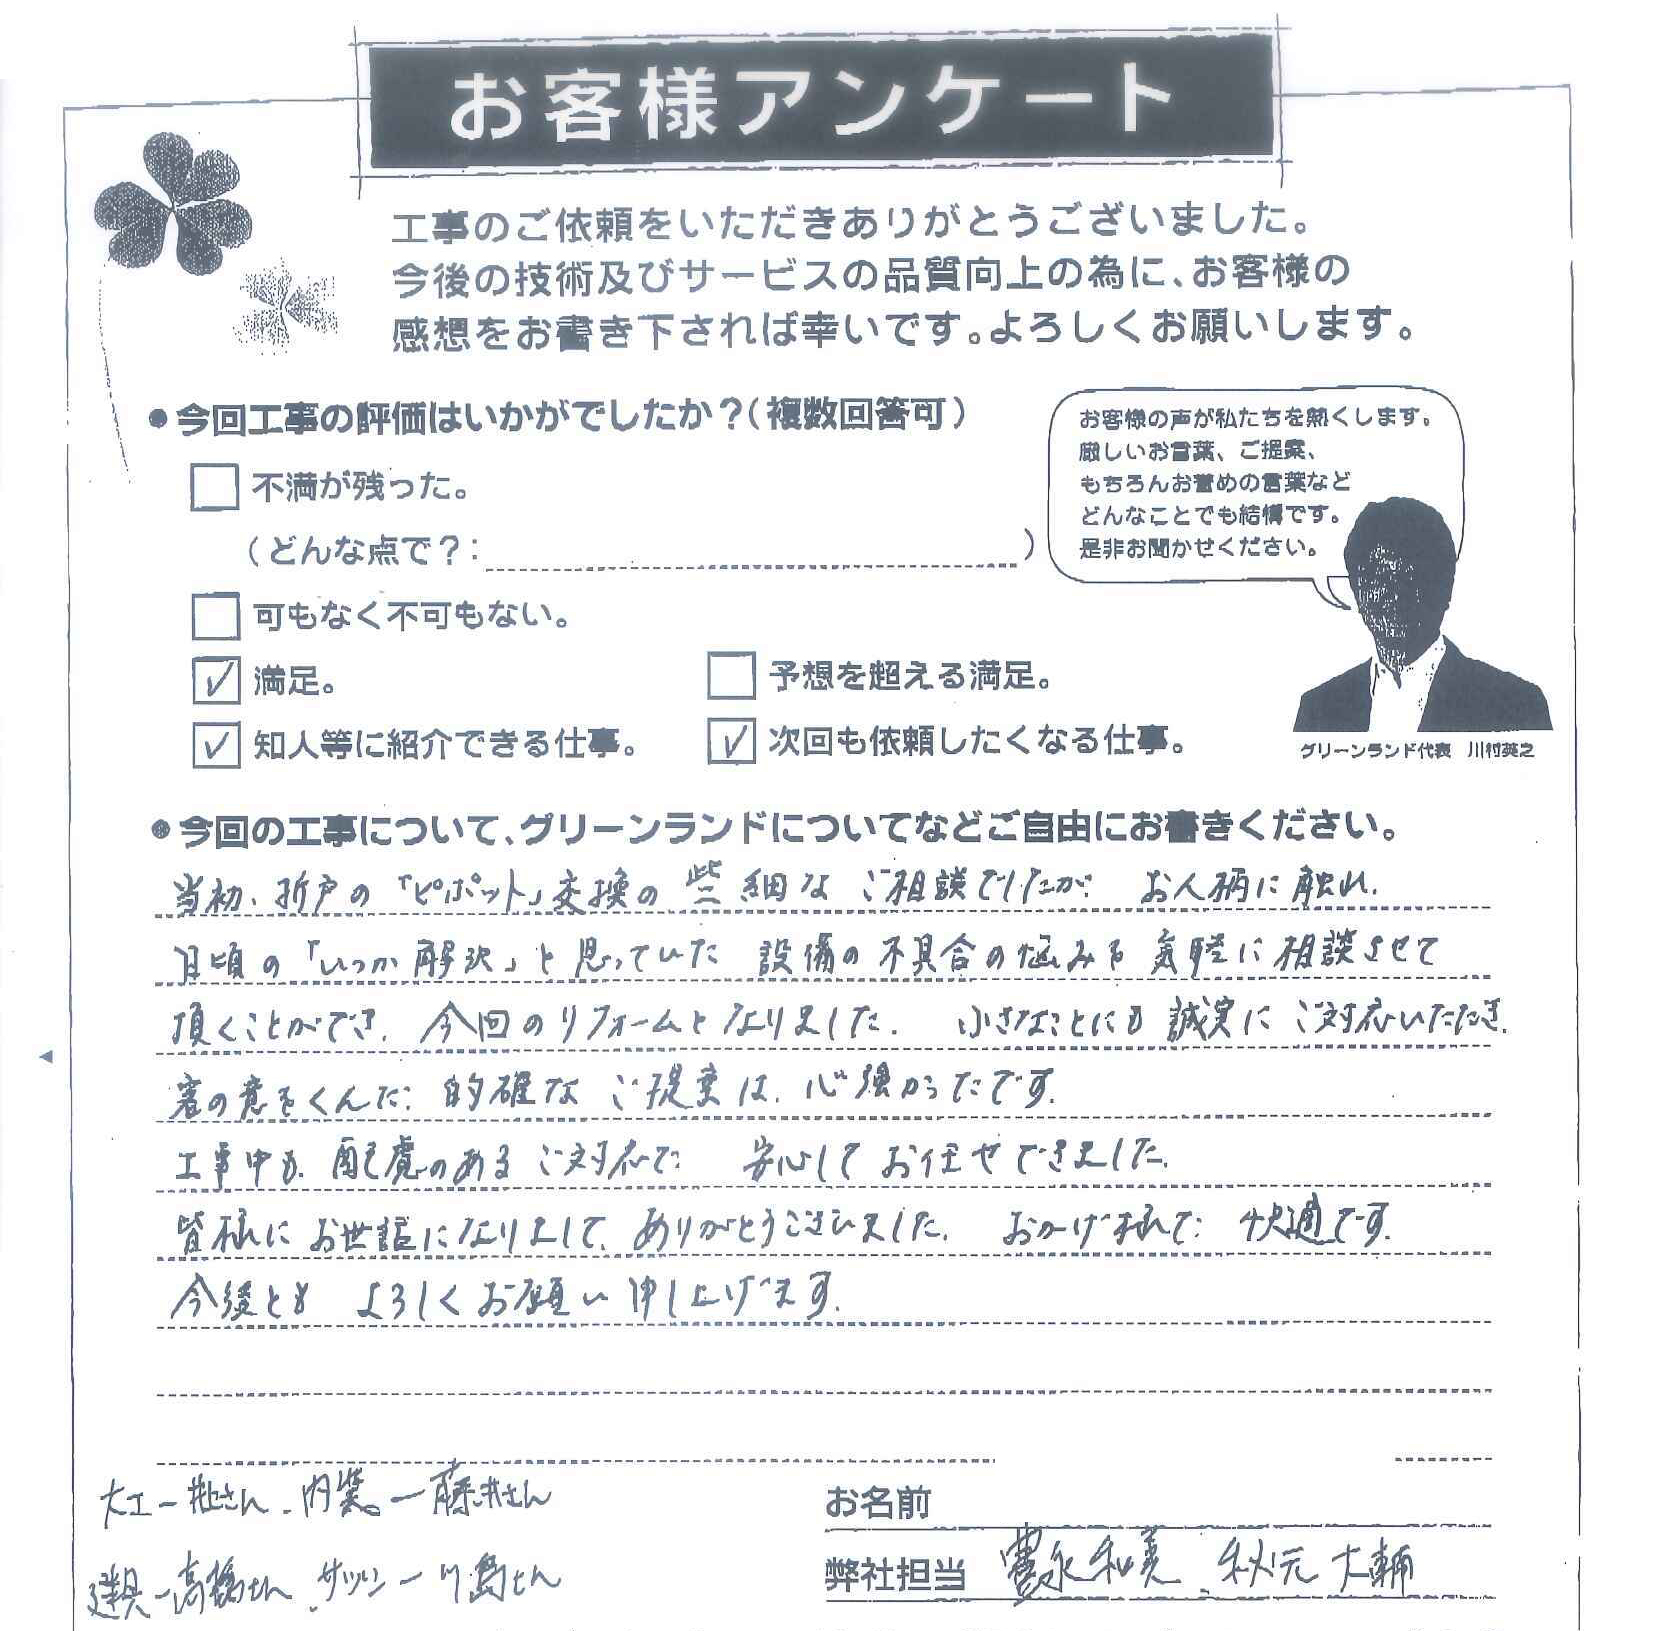 お客様アンケート
工事のご依頼をいただきありがとうございました。
今後の技術及びサービスの品質向上の為に、お客様の
感想をお書き下されば幸いです。よろしくお願いします。
●今回工事の評価はいかがでしたか？（複数回答可）
不満が残った。
（どんな点で？：　）
可もなく不可もない。
✓ 満足。
予想を超える満足。
✓ 知人等に紹介できる仕事。
✓ 次回も依頼したくなる仕事。
お客様の声が私たちを熱くします。
厳しいお言葉、ご提案、
もちろんお誉めの言葉など
どんなことでも結構です。
是非お聞かせください。
グリーンランド代表　川村英之
●今回の工事について、グリーンランドについてなどご自由にお書きください。
当初、折戸の「ピポット」交換の些細なご相談でしたが お人柄に触れ、
日頃の「いつか解決」と思っていた 設備の不具合の悩みも気軽に相談させて
頂くことができ、今回のリフォームとなりました。 小さなことにも誠実にご対応いただき、
客の意をくんだ 的確な ご提案は、心強かったです。
工事中も、配慮のあるご対応で 安心してお任せできました。
皆様にお世話になりまして、ありがとうございました。 おかげ様で 快適です。
今後とも よろしくお願い申し上げます。
大工ー さん、内装ー藤井さん
建具ー高橋さん、サッシー川島さん
お名前
弊社担当 豊永和美、秋元大輔